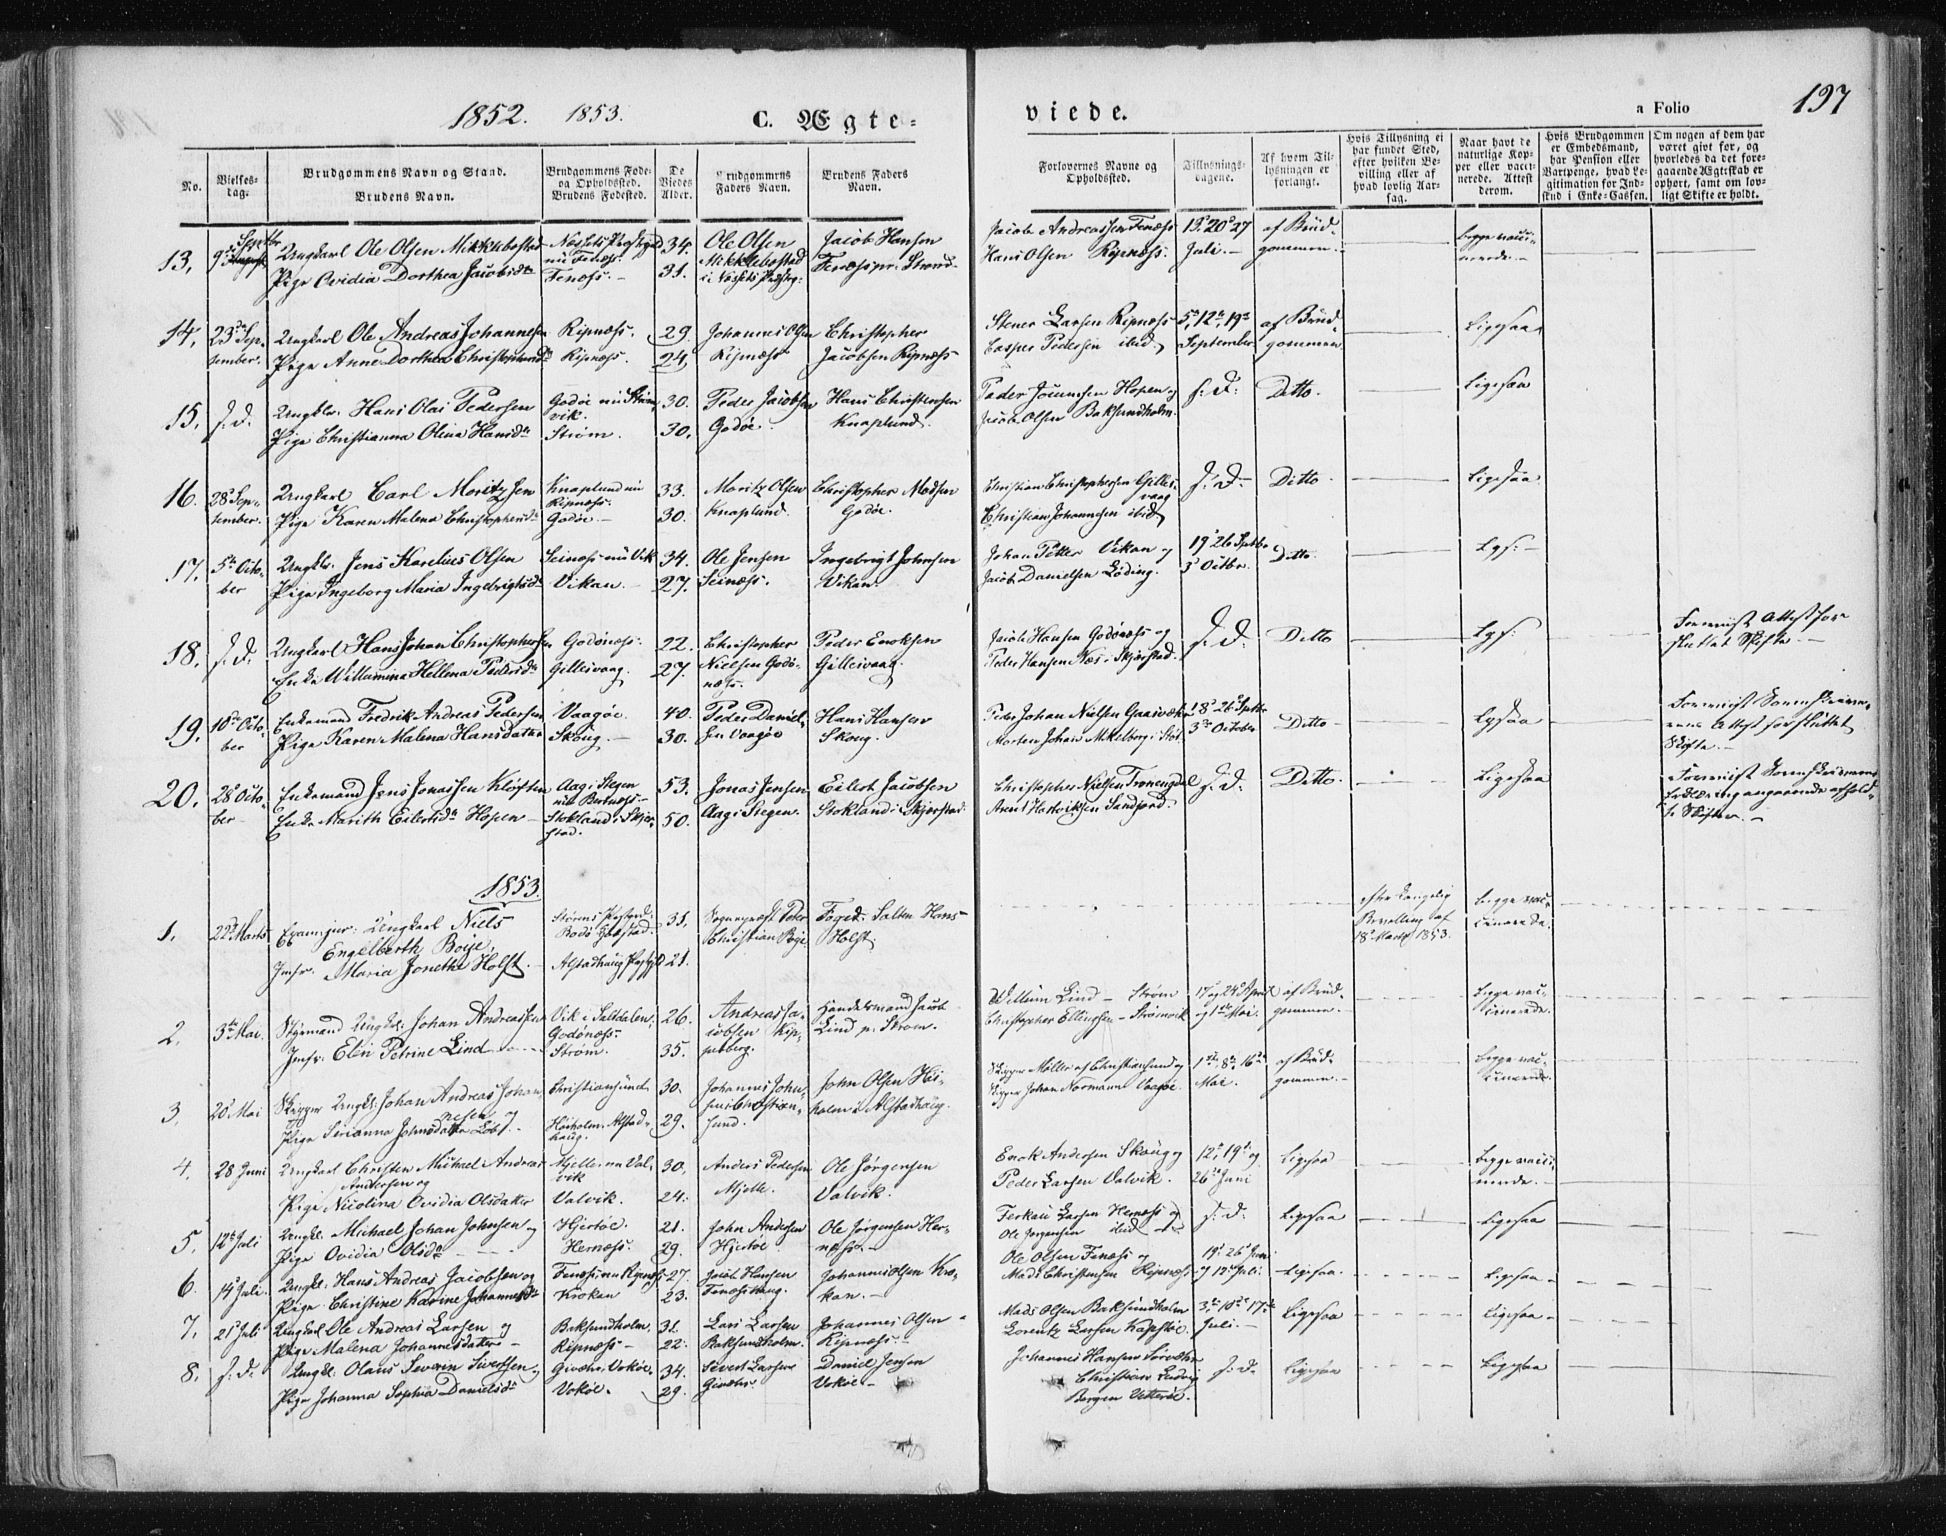 1852. 1853.
C. Ægte-
viede.
a Folio
197
No.
Vielses-
dag.
Brudgommens Navn og Stand.
Brudens Navn.
Brudgommens Føde-
og Opholdssted.
Brudens Fødested.
De
Viedes
Alder.
Brudgommens
Faders Navn.
Brudens Faders
Navn.
Forlovernes Navne og
Opholdssted.
Tillysnings-
dagene.
Af hvem Til-
lysningen er
forlangt.
Hvis Tillysning ei
har fundet Sted,
efter hvilken Be-
villing eller af
hvad lovlig Aar-
sag.
Naar havt de
naturlige Kop-
per eller vacci-
nerede. Attest
derom.
Hvis Brudgommen
er Embedsmand,
har Pension eller
Vartpenge, hvad Le-
gitimation for Ind-
skud i Enke-Cassen.
Om nogen af dem har
været givt før, og
hvorledes da det fore-
gaaende Ægteskab er
ophørt, samt om lov-
ligt Skifte er holdt.
13, 9de Septbr
Ungkarl Ole Olsen Mikkelbostad
Pige Ovidia Dorthea Jacobsdtr
Næssets Præstegd
nu Fenæss.
Fenæss.
34.
31.
Ole Olsen
Mikkelbostad
i Næssets Præsteg:
Jacob Hansen
Fenæss pr. Strand.
Jacob Andreassen Fenæss
Hans Olsen Ripnæss.
13. 20 27
Juli.
af Brud-
gommen.
begge vacci-
nerede.
14, 23de Sep-
tember.
Ungkarl Ole Andreas Johannesen
Pige Anne Dorthea Christophersdtr
Ripnæss.
Ripnæss.
29.
24,
Johannes Olsen
Ripnæss
Christopher
Jacobsen Ripnæss
Stener Larsen Ripnæss
Casper Pedersen ibid.
5te, 12te, 19de
September
af Brud-
gommen
Ligesaa
15, s. d.
Ungkr. Hans Olai Pedersen
Pige Christianna Olina Hansdtr
Godøe nu Strøm-
vik.
Strøm.
30.
30,
Peder Jacobsen
Godøe.
Hans Christensen
Knaplund.
Peder Joensen Hopen og
Jacob Olsen Baksundholm.
s. d:
Ditto.
Ligesaa
16. 28de Sep-
tember.
Ungkarl Carl Moritzsen
Pige Karen Malena Christophersdtr
Knaplund nu
Ripnæss.
Godøe.
33.
30.
Moritz Olsen
Knaplund.
Christopher Madsen
Godøe.
Christian Christophersen Gilles-
vaag
Christian Johannesen ibid
s. d.
Ditto
Ligesaa
17, 5te Octo-
ber
Ungkr. Jens Karelius Olsen
Pige Ingeborg Maria Ingebrigtsdtr
Seinæss nu Vik
Vikan.
34.
27.
Ole Jensen
Seinæss.
Ingebrigt Johnsen
Vikan.
Johan Petter Vikan og
Jacob Danielsen Løding.
19 26 Septbr
3 Octbr.
Ditto.
Lgs:
18, s. d.
Ungkarl Hans Johan Christophersen
Enke Willumina Hellena Pedersdtr
Godønæss.
Gillesvaag.
22.
27.
Christopher
Nielsen Godø-
næss.
Peder Enoksen
Gillesvaag.
Jacob Hansen Godønæss og
Peder Hansen Næs i Skjerstad.
s. d.
Ditto
Lgs:
Forevist Attest for
sluttet Skifte.
19, 10de Octo-
ber
Enkemand Fredrik Andreas Pedersen
Pige Karen Malena Hansdatter
Vaagøe.
Skoug.
40.
30.
Peder Daniel-
sen Vaagøe
Hans Hansen
Skoug.
Peder Johan Nielsen Gaasvær
Morten Johan Mikelborg i Stot.
18 26 Septbr
3de October
Ditto
Lgsaa
Forevist Sorenskrive-
rens Attest for sluttet
Skifte.
20, 28de Octo-
ber
Enkemand Jens Jonassen Kløften
Enke Marith Eilertsdtr Hopen
Aag i Stegen
nu Bertnæss.
Stokland i Skjer-
stad.
53.
50.
Jonas Jensen
Aag i Stegen.
Eilert Jacobsen
Stokland i Skjerstad
Christopher Nielsen Tronengdal
Arent Henriksen Sandjord.
s. d.
Ditto.
Ligesaa
Forevist Sorenskriverens
Erklæring angaaende afhold-
te Skifter.
1853.
1, 22de Marts
Exam: jur: Ungkarl Niels
Engelberth Boÿe,
Jmfr. Maria Jonetha Holst.
Størens Præstegd:
Bodø Kjøbstad.
Alstadhaug Præstgd
31.
21.
Sognepræst Peter
Christian Boye
Foged i Salten Hans
Holst.
efter kongelig
Bevilling af
18de Marts 1853.
begge vac-
cinerede.
2, 3die Mai.
Styrmand Ungkl. Johan Andreassen
Jmfr. Elen Petrine Lind
Vik i Saltdalen,
Godønæss.
Strøm.
26.
35.
Andreas Ja-
cobsen Kip-
perberg.
Handelsmand Jacob
Lind p. Strøm.
Willum Lind – Strøm
Christopher Ellingsen – Strømvik
17 og 24 April
og 1ste Mai.
af Brud-
gommen.
begge vac-
cinerede.
3, 20de Mai
Skipper Ungkl. Johan Andreas Johan-
nesen
Pige Serianna Johnsdatter
Christiansund
Høiholm, Alstad-
haug.
30.
29.
Johannes John-
sen Christian-
sund.
John Olsen Høi-
holm i Alstadhaug.
Skipper Møller af Christiansund og
Skipper Johan Normann Vaagøe.
1ste, 8de, 16de
Mai.
af Brud-
gommen.
begge vac-
cinerede.
4, 28 Juni
Ungkarl Christen Michael Andreas
Andersen og
Pige Nicolina Ovidia Olsdatter
Mjelle nu Val-
vik
Valvik.
30,
24.
Anders Pedersen
Mjelle.
Ole Jørgensen
Valvik.
Enok Andersen Skoug og
Peder Larsen Valvik.
12te, 19de og
26de Juni
Ligesaa
begge vacci-
nerede.
5, 12te Juli
Ungkl. Michael Johan Johnsen og
Pige Ovidia Olsdtr
Hjertøe.
Hernæss.
21.
29.
John Andersen
Hjertøe
Ole Jørgensen Her-
næss.
Larsen Hernæss og
Ole Jørgensen ibid
s. d.
Ligesaa
Ligesaa
6. 14de Juli.
Ungkl. Hans Andreas Jacobsen og
Pige Christine Karine Johannesdtr
Fenæss nu Ripnæss
Krokan
27.
23.
Jacob Hansen
Fenæss
Johannes Olsen Kro-
kan.
Ole Olsen Fenæss og
Mads Christensen Ripnæss
19, 26 Juni
og 12 Juli.
Ligesaa.
Ligesaa
7, 21de Juli
Ungkarl Ole Andreas Larsen og
Pige Malena Johannesdatter
Baksundholm.
Ripnæss
31.
22.
Lars Larsen
Baksundholm.
Johannes Olsen
Ripnæss.
Mads Olsen Baksundholm
Lorentz Larsen Kapstøe
3de, 10de 17de
Juli.
Ligesaa
Ligesaa
8, s. d.
Ungkl. Olaus Severin Sivertsen og
Pige Johanna Sophia Danielsdtr
Givær, Vokøe.
Vokøe.
34.
29.
Sivert Larsen
Givær
Daniel Jensen
Vokøe
Johannes Hansen Sørvær
Christian Ludvig
Borgen Vetterøe.
s. d.
Ligesaa
Ligesaa